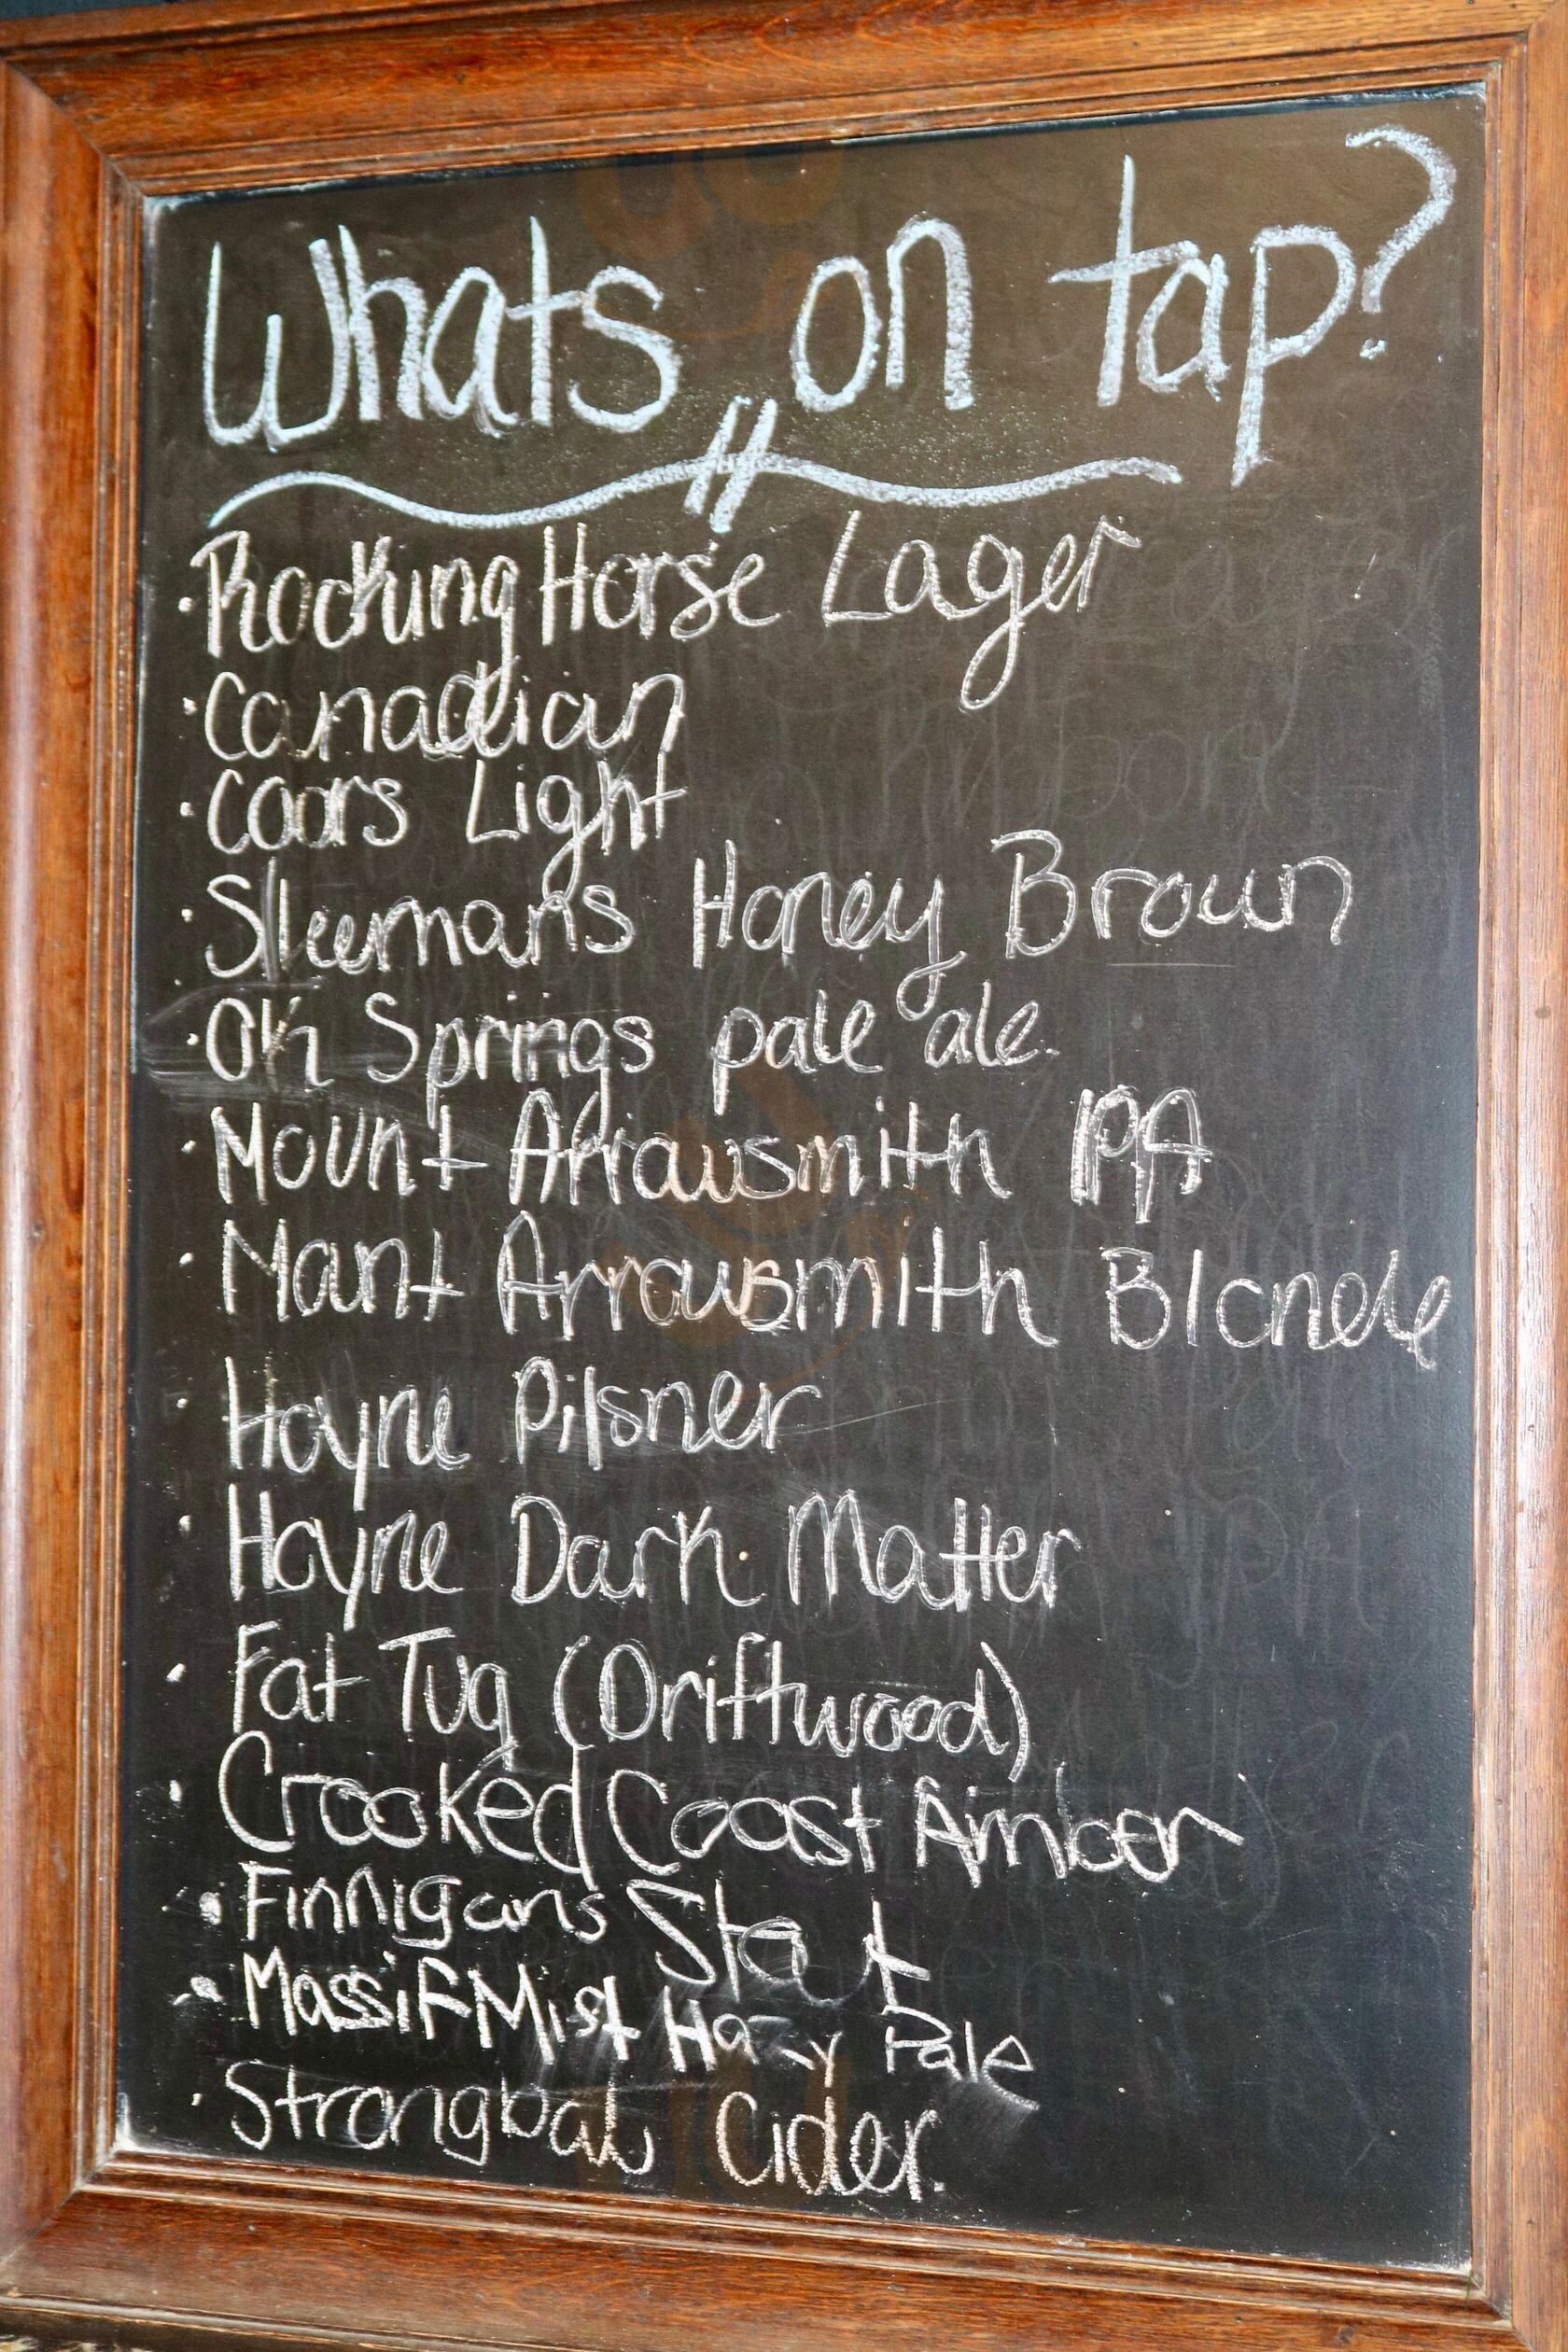 Whats on tap?
· Rocking Horse Lager
· Canadian
· Coors Light
· Sleemans Honey Brown
· OK Springs pale ale.
· Mount Arrowsmith IPA
· Mount Arrowsmith Blonde
· Hoyne Pilsner
· Hoyne Dark Matter
· Fat Tug (Driftwood)
· Crooked Coast Amber
· Finnigans Stout
· Massif Mist Hazy Pale
· Strongbow Cider.